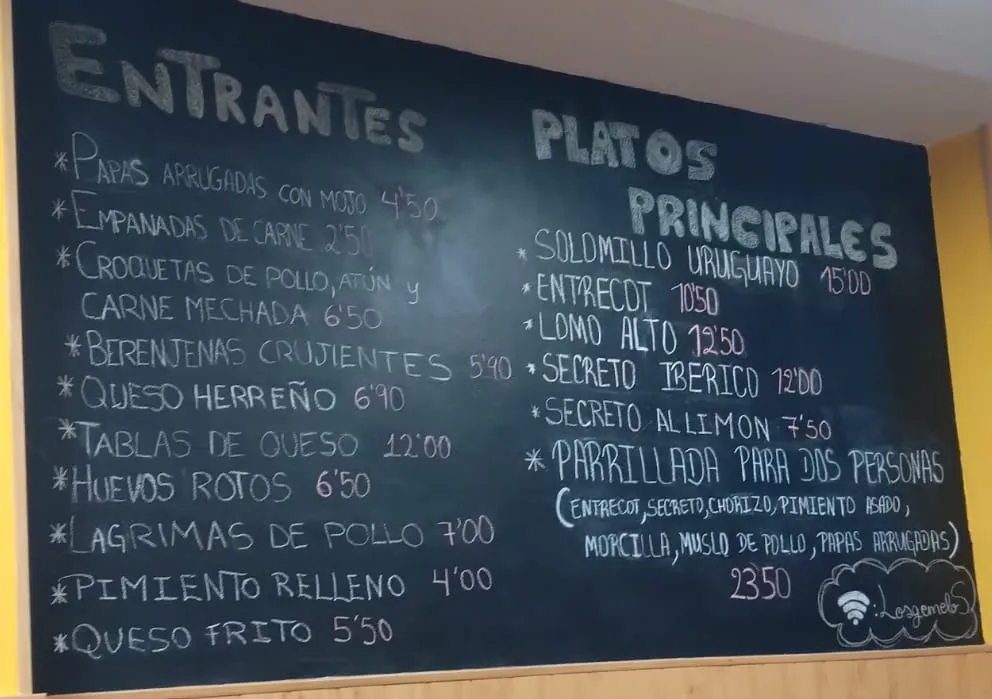 ENTRANTES
*PAPAS ARRUGADAS CON MOJO 4'50
*EMPANADAS DE CARNE 2'50
*CROQUETAS DE POLLO, ATÚN y
CARNE MECHADA 6'50
*BERENJENAS CRUJIENTES 5'90
*QUESO HERREÑO 6'90
*TABLAS DE QUESO 12'00
*HUEVOS ROTOS 6'50
*LAGRIMAS DE POLLO 7'00
*PIMIENTO RELLENO 4'00
*QUESO FRITO 5'50
PLATOS
PRINCIPALES
*SOLOMILLO URUGUAYO 15'00
*ENTRECOT 10'50
*LOMO ALTO 12'50
*SECRETO IBERICO 12'00
*SECRETO AL LIMON 7'50
*PARRILLADA PARA DOS PERSONAS
(ENTRECOT, SECRETO, CHORIZO, PIMIENTO ASADO,
MORCILLA, MUSLO DE POLLO, PAPAS ARRUGADAS)
23'50
: LosgemeloS